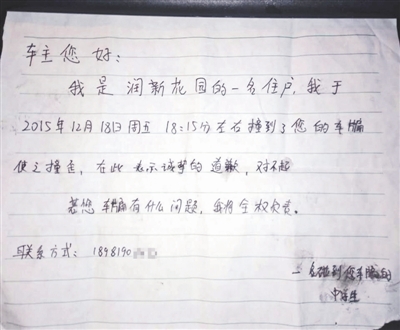 车主您好:
我是润新花园的一名住户,我于
2015年12月18日周五 18:15分左右撞到了您的车牌
使之撞歪,在此表示诚挚的道歉,对不起
若您车牌有什么问题,我将全权负责。
联系方式:1898190
一名碰到您车牌的
中学生